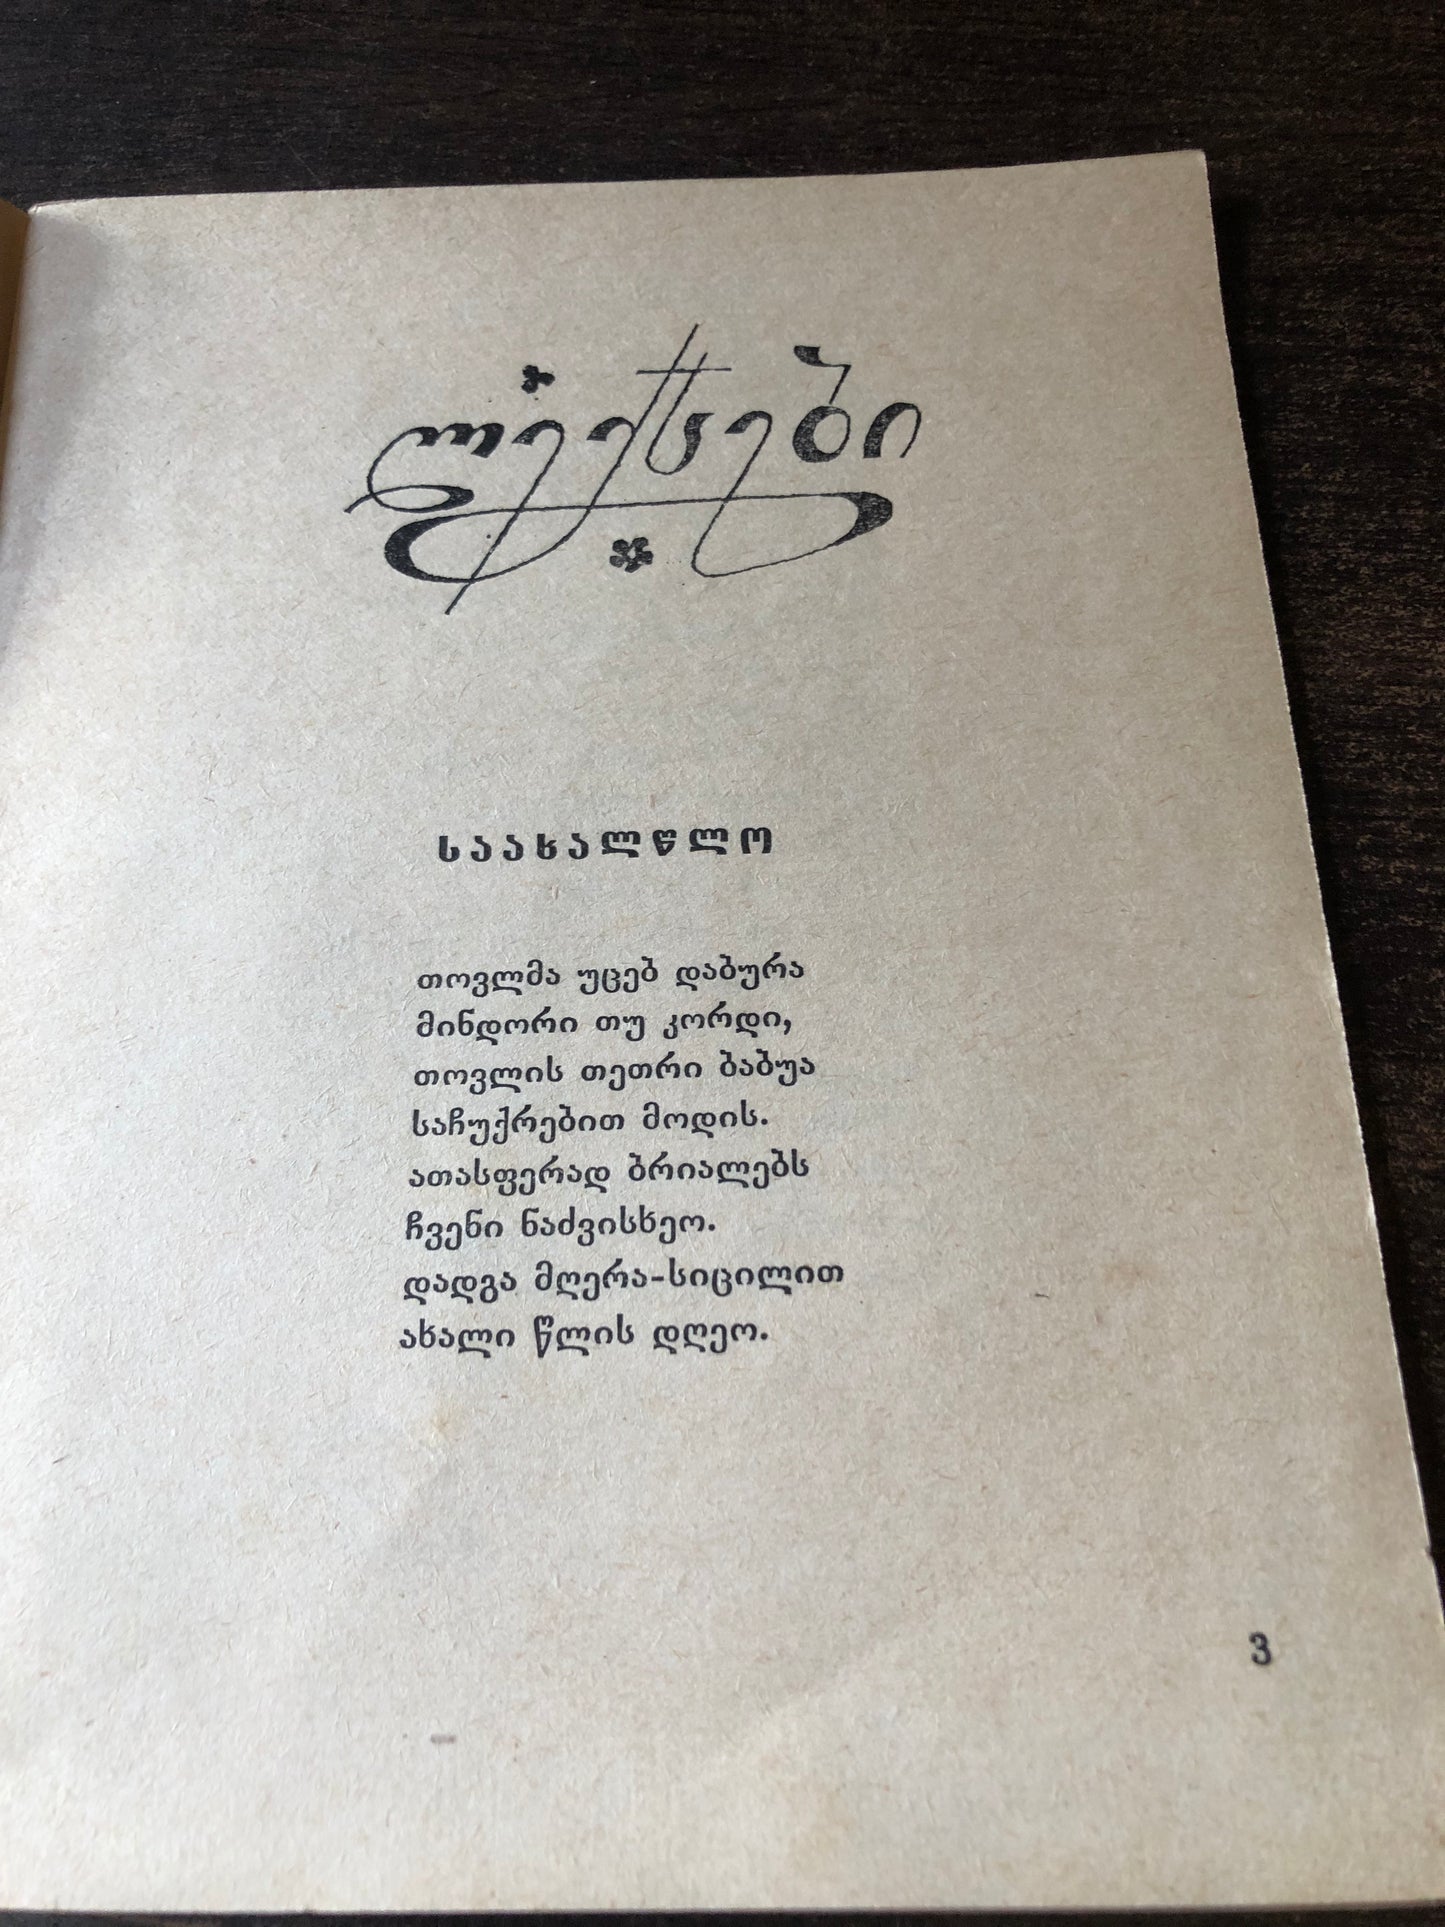 ლექსები
საახალწლო
თოვლმა უცებ დაბურა
მინდორი თუ კორდი,
თოვლის თეთრი ბაბუა
საჩუქრებით მოდის.
ათასფერად ბრიალებს
ჩვენი ნაძვისხეო.
დადგა მღერა-სიცილით
ახალი წლის დღეო.
3